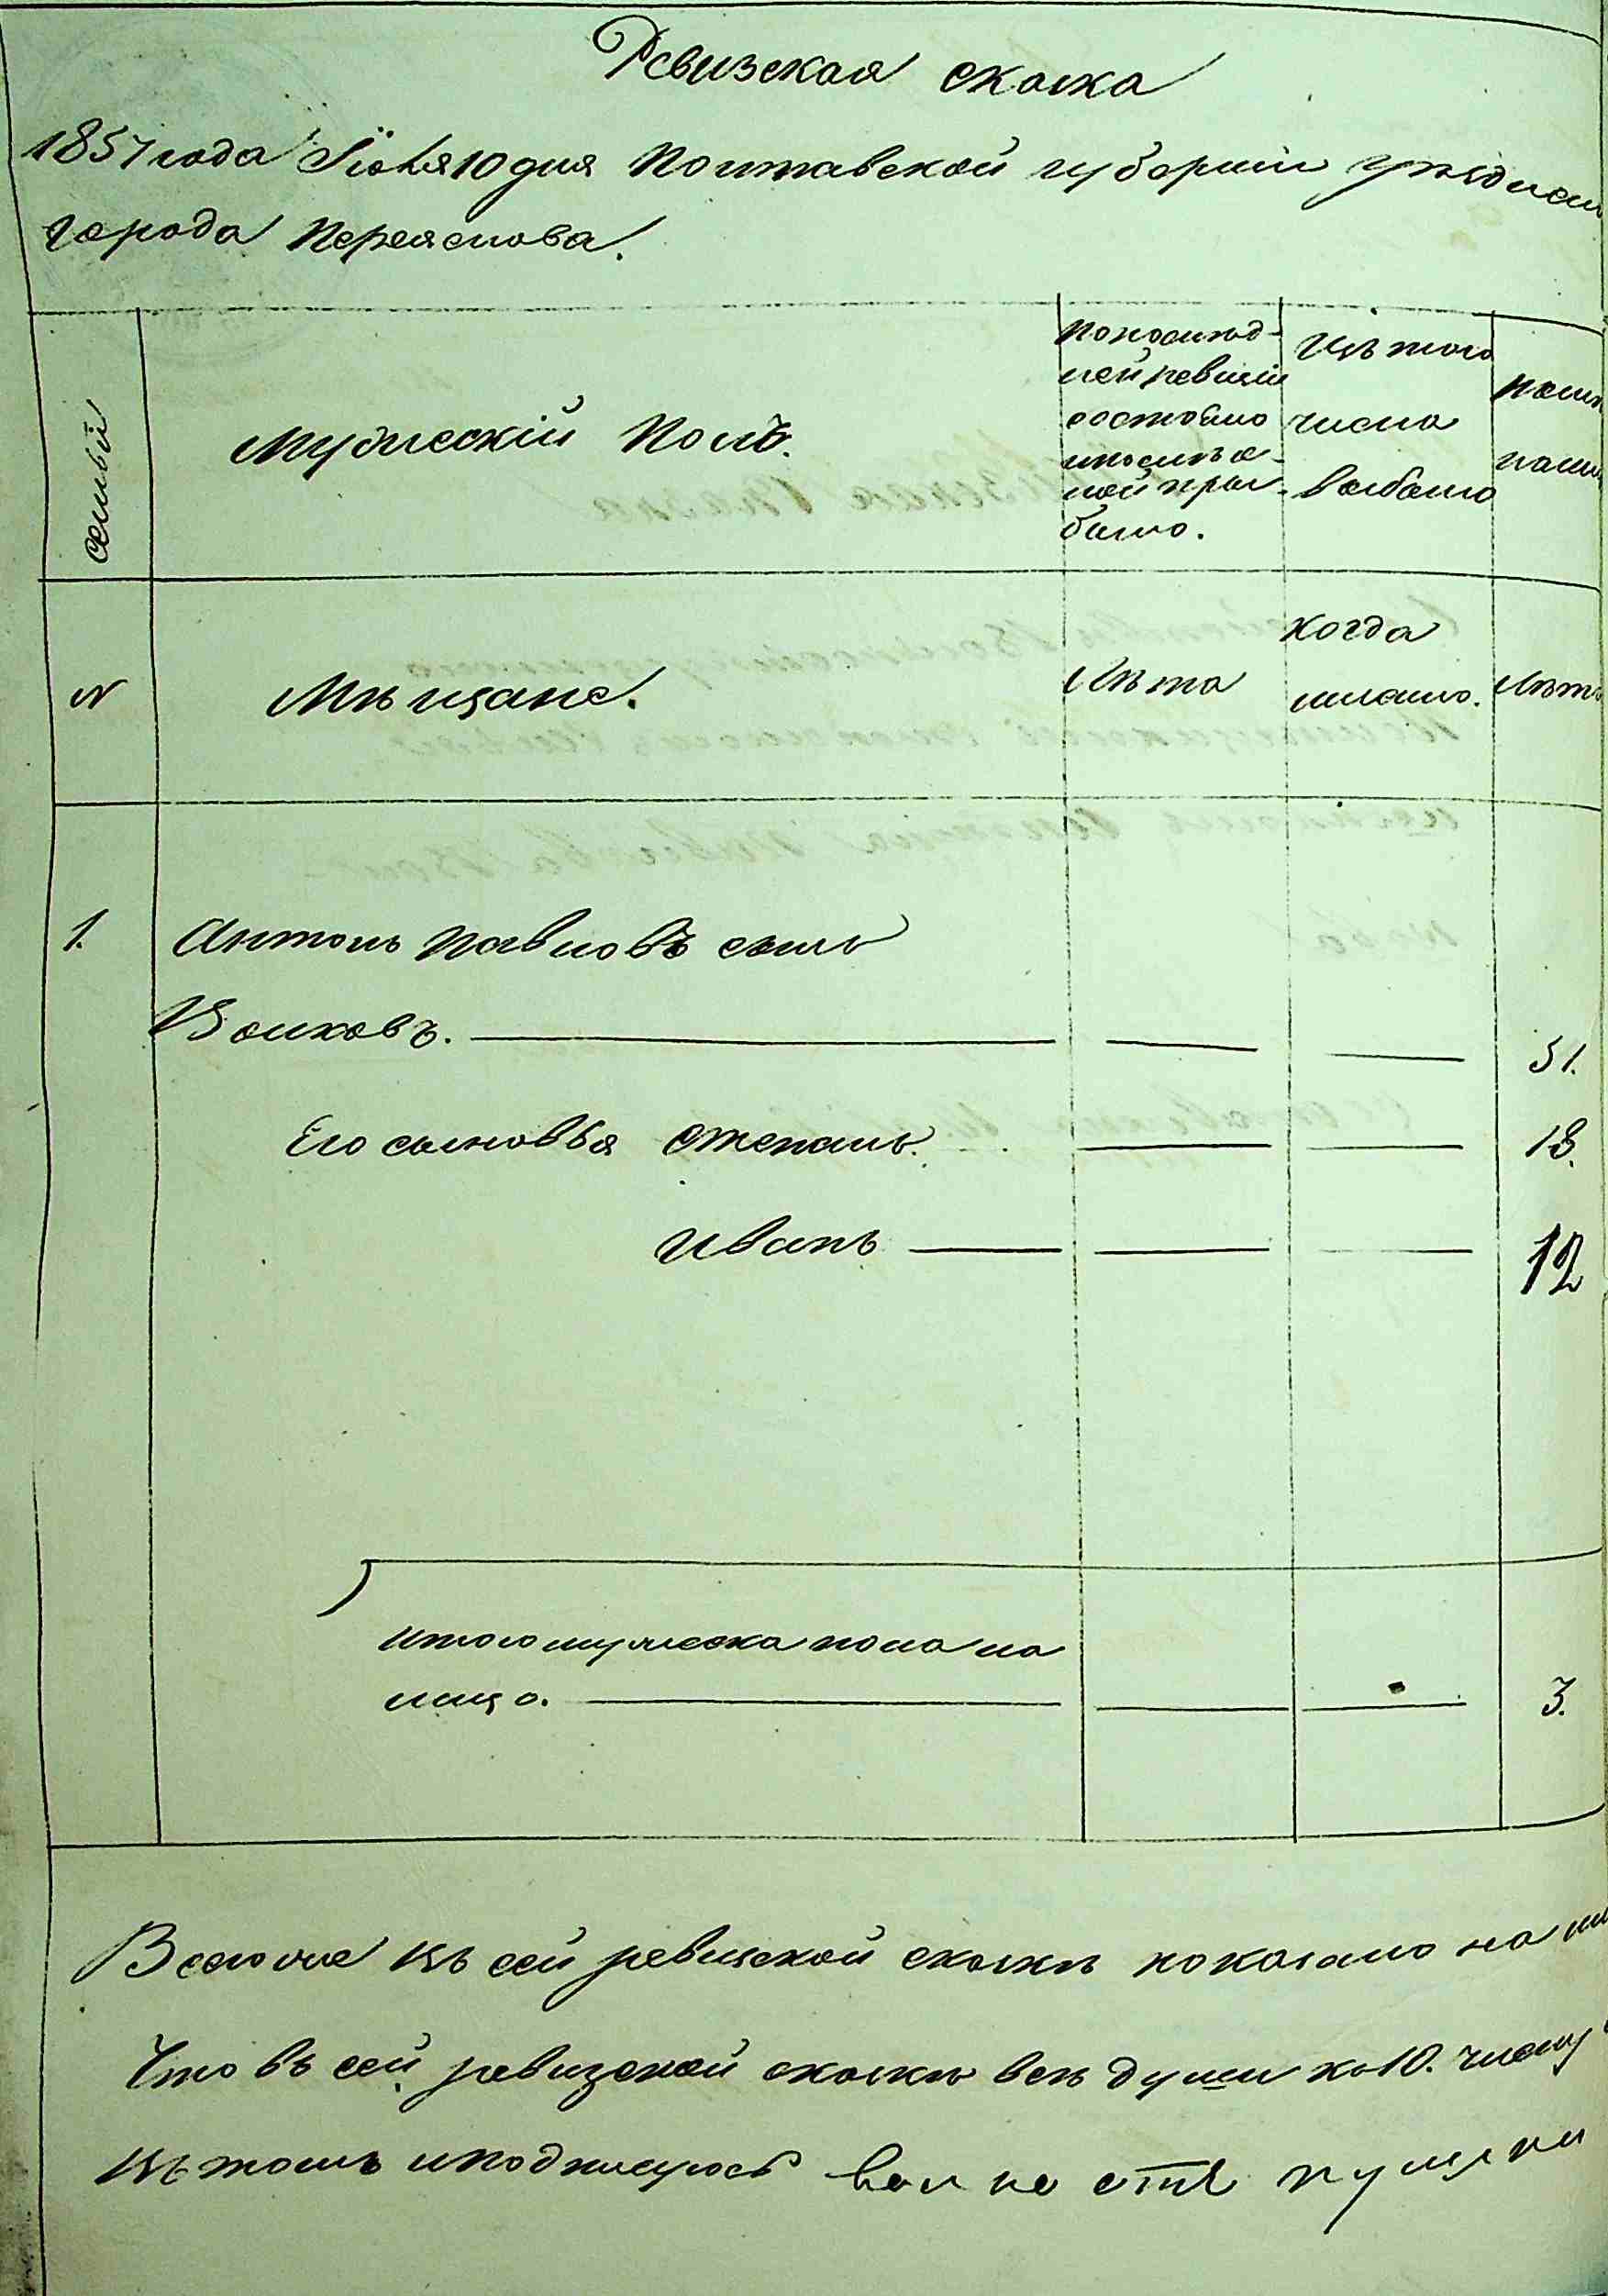 Ревизская сказка
1857 года Іюня 10 дня Полтавской губерніи уѣзднаго
города Переяслова.
семьи
Мужескій полъ.
По послѣд-
ней ревизіи
состояло
и послѣ о-
ной при-
было.
Изъ того
числа
выбыло
нынѣ
на ли
№
Мѣщане.
Лѣта
Когда
именно.
Лѣта
1.
Антонъ Павловъ сынъ
Волковъ.
51.
Его сыновья Степанъ.
18.
Иванъ
12
Итого мужеска пола на
лицо.
3.
Всего же въ сей ревизской сказкѣ показано на ли
Что въ сей ревизской сказкѣ всѣ души къ 10. числу
въ томъ и подписуюсь